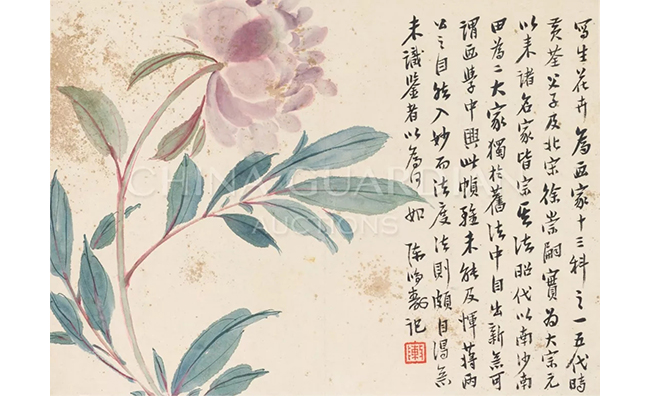 寫生花卉為画家十三科之一五代時
黃荃父子及北宋徐崇嗣實為大宗元
以来諸名家皆宗其法昭代以南沙南
田為二大家獨於舊法中自出新意可
謂画學中興此幀雖未能及惲蔣兩
公之自然入妙而法度法則頗自
未識鑒者以為何如 陳鴻壽记
CHINA GUARDIAN
AUCTIONS